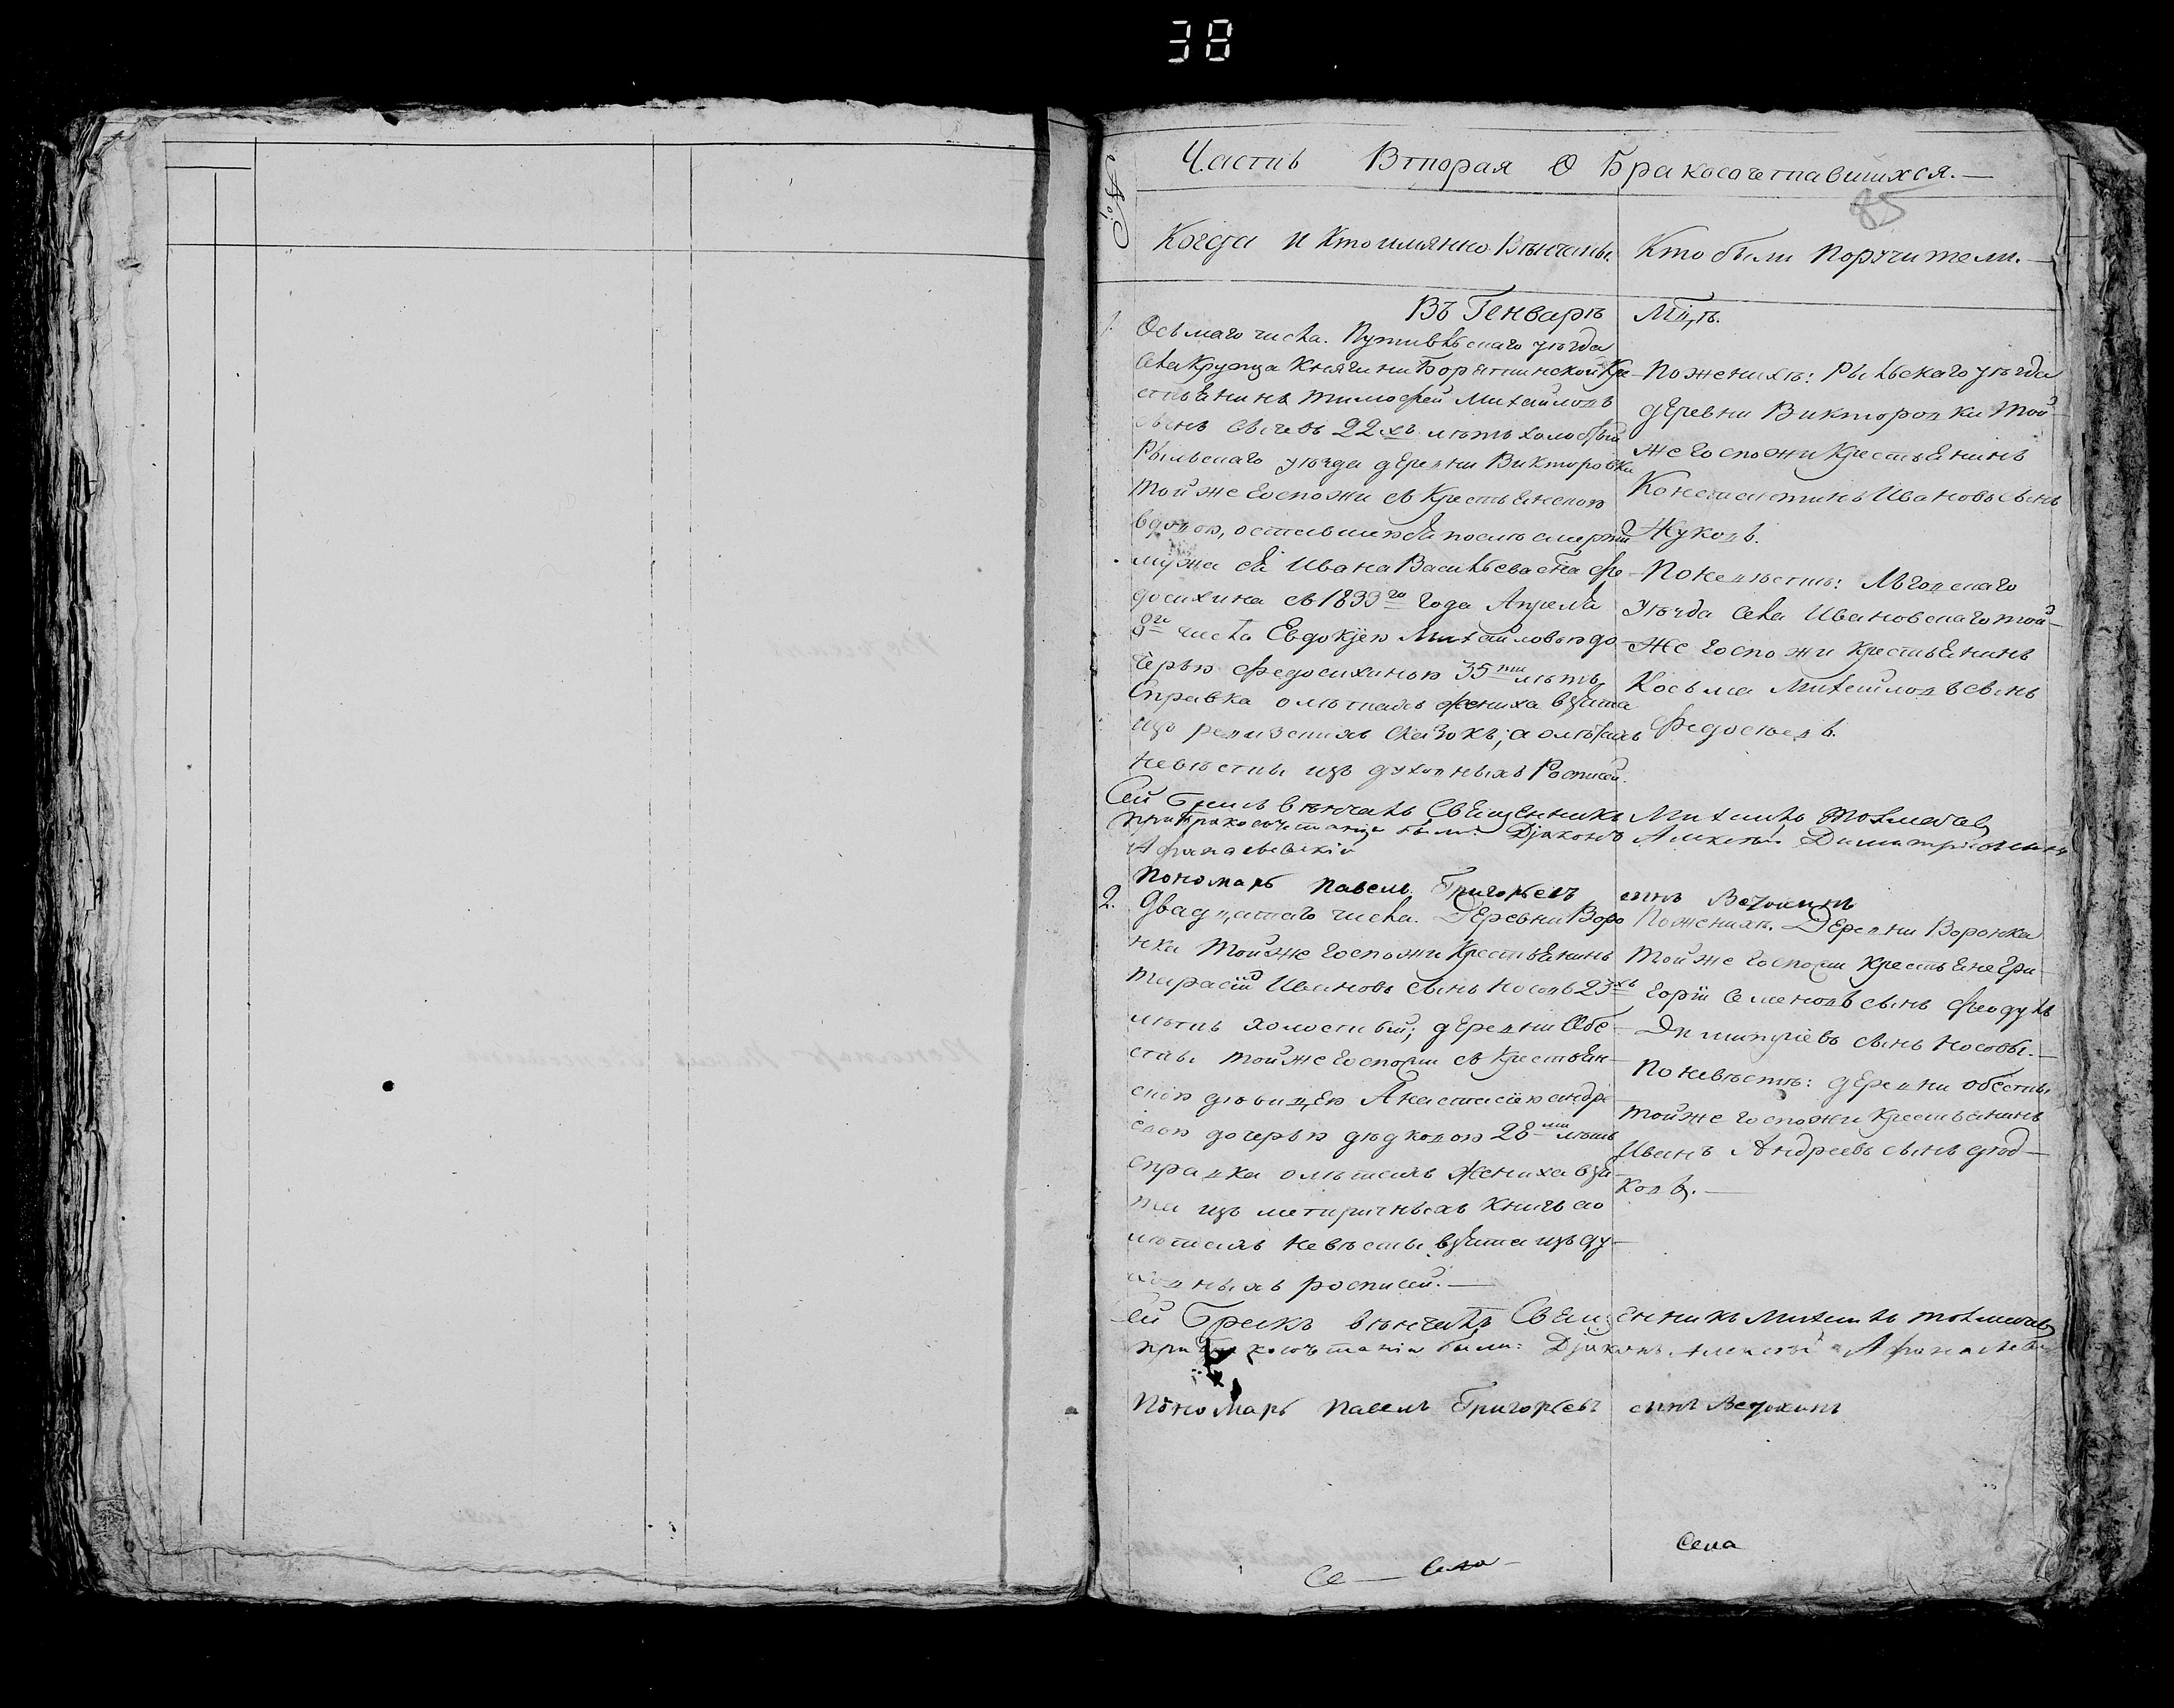 38
Часть Вторая О Бракосочетавшихся.—
85
№
Когда и Кто имянно Вѣнчаны.
Кто были Поручители.—
Въ Генварѣ Мцѣ.
1.
Осьмаго числа. Путивльскаго уѣзда
села Крупца Княгини Борятинской Кре-
стьянинъ Тимофей Михайловъ
сынъ Сычевъ 22хъ лѣтъ холостый
Рыльскаго уѣзда деревни Викторовки
той же Госпожи съ Крестьянскою
вдовою, оставшеюся послѣ смерти
мужа ея Ивана Васильева сна Фе-
досихина съ 1833го года Апреля
числа Евдокіею Михайловою до-
черью Федосихиною 35ти лѣтъ
Справка о лѣтахъ жениха взята
изъ ревизскихъ сказокъ, а о лѣтахъ
невѣсты изъ духовныхъ Росписей.
По женихѣ: Рыльскаго уѣзда
деревни Викторовки той
же Госпожи Крестьянинъ
Константинъ Ивановъ сынъ
Жуковъ.
По невѣстѣ: Льговскаго
уѣзда села Ивановскаго той-
же Госпожи Крестьянинъ
Косьма Михайловъ сынъ
Федосѣевъ.
Сей Бракъ вѣнчалъ Священникъ Михаилъ Толмачев
при бракосочетаніи были: Діаконъ Алексѣй Димитріевъ сынъ
Пономарь Павелъ Григорьевъ сынъ
2.
Двадцатаго числа. Деревни Воро
нка той же Госпожи Крестьянинъ
Тарасій Ивановъ сынъ Носовъ 23хъ
лѣтъ холостый; деревни Обе-
сты той же Госпожи съ Крестьян-
скою дѣвицею Анастасіею Андре
евою дочерью Дюдковою 28ми лѣтъ
справка о лѣтахъ Жениха взя-
та изъ метричныхъ Книгъ а о
лѣтахъ Невѣсты взята изъ ду-
ховныхъ росписей.—
По женихѣ. Деревни Воронка
той же Госпожи Крестьяне Гри
горій Семеновъ сынъ Феодулъ
Димитріевъ сынъ Носовы.—
По невѣстѣ: деревни обесты
той же Госпожи Крестьянинъ
Иванъ Андреевъ сынъ Дюд—
ковъ.—
Сей Бракъ вѣнчалъ Священникъ Михаилъ Толмачев
при бракосочетаніи были: Діаконъ Алексѣй
Пономарь Павелъ Григорьевъ сынъ
Се— Села
Села